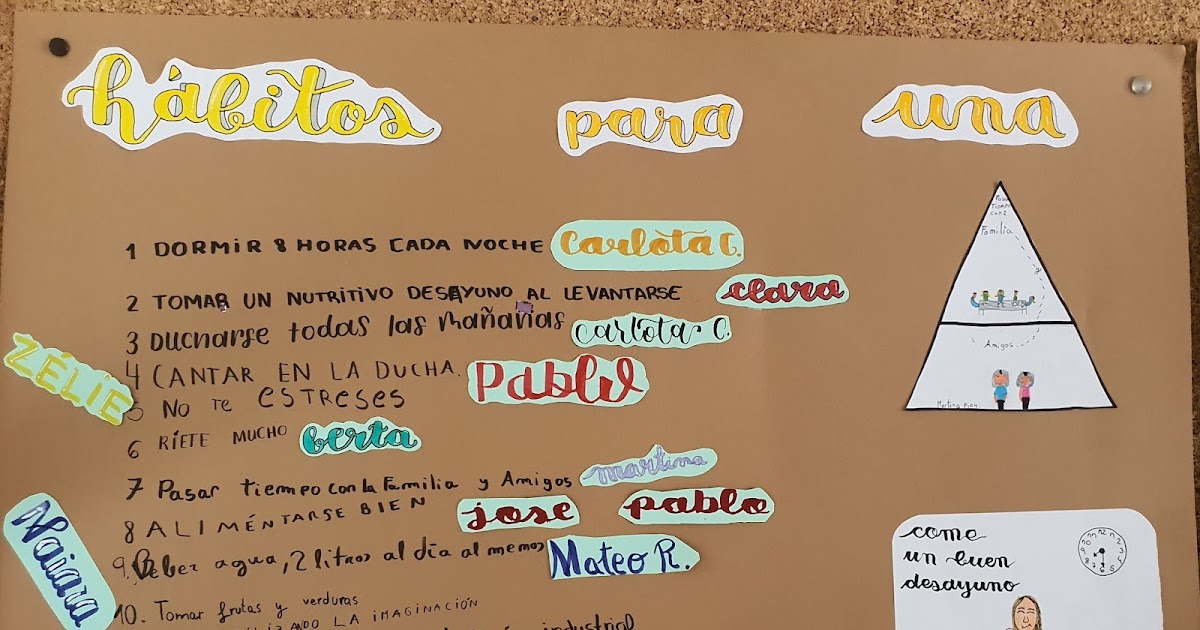 hábitos para una
1 DORMIR 8 HORAS CADA NOCHE Carlota C.
2 TOMAR UN NUTRITIVO DESAYUNO AL LEVANTARSE clara
3 DUCHARSE todas las mañanas carlota C.
ZÉLIE
4 CANTAR EN LA DUCHA. Pablo
5 NO TE ESTRESES
6 RÍETE MUCHO berta
7 Pasar tiempo con la Familia y Amigos martina
8 ALIMÉNTARSE BIEN jose pablo
9. Beber agua, 2 litros al día al menos Mateo R.
Naiara
10. Tomar frutas y verduras
LA IMAGINACIÓN
industrial
Familia
Amigos
come
un buen
desayuno